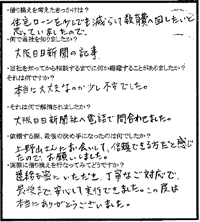 ・借り換えを考えたきっかけは？
住宅ローンを少しでも減らして教育費へ回したいと
思っていましたので。
・何で当社を知りましたか？
大阪日日新聞の記事
・当社を知ってから相談するまでに何か躊躇することがありましたか？
それは何ですか？
本当に大丈夫なのか少し不安でした。
・それは何で解消されましたか？
大阪日日新聞社へ電話で問合わせました。
・依頼する際、最後の決め手になったのは何でしたか？
上野山さんにお会いして、信頼できる方だと感じ
たので、お願いしました。
・実際に借り換えを行なってみてどうですか？
連絡を密にいただき、丁寧なご対応で、
最後まで安心して実行できました。この度は
本当にありがとうございました。